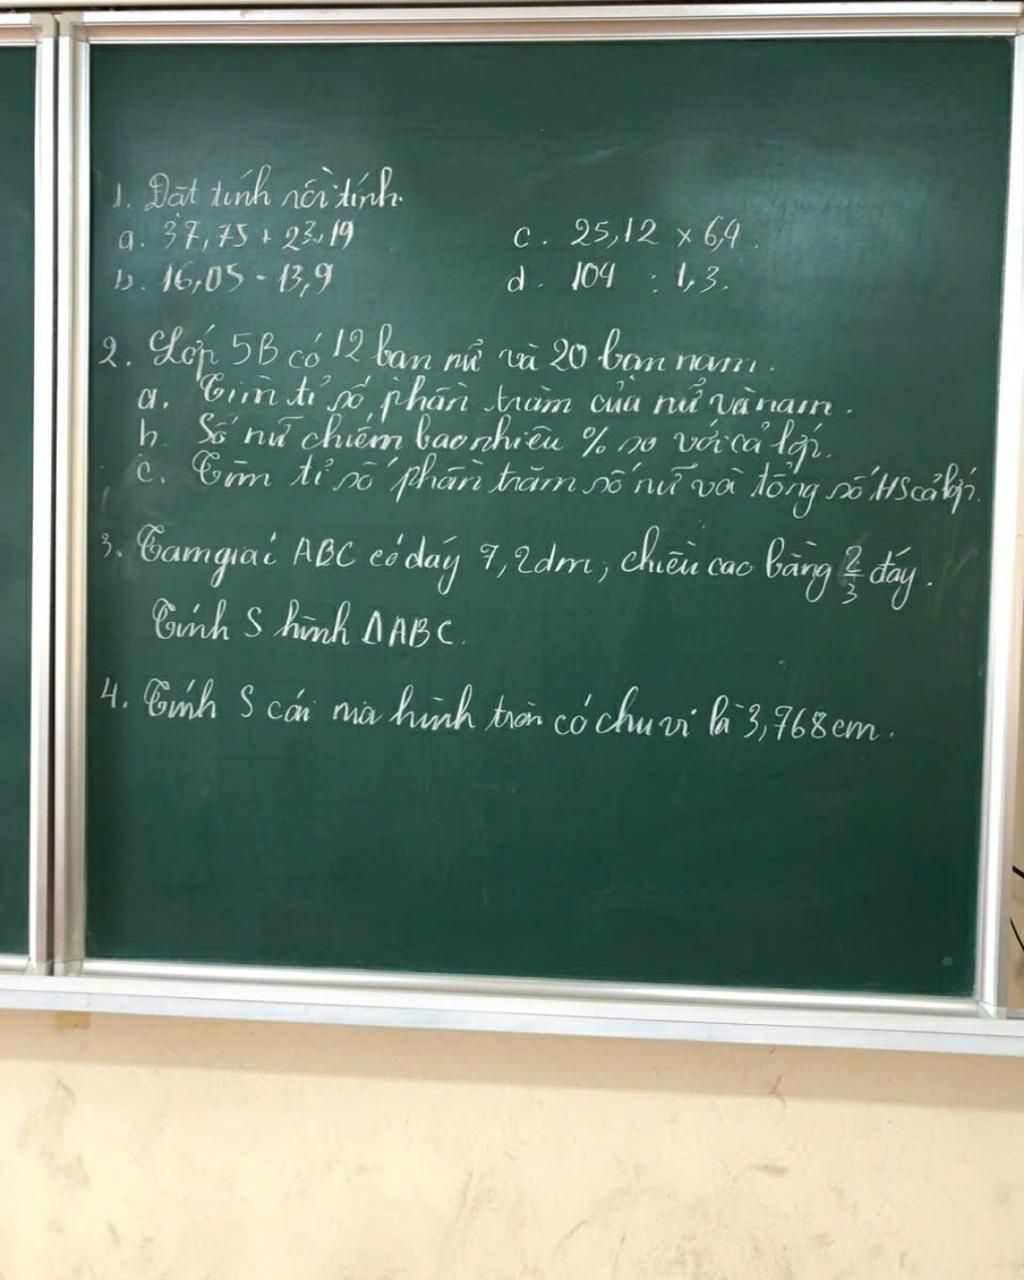 1. Đặt tính rồi tính.
a. 37,75 + 23,19
c. 25,12 x 6,4.
b. 16,05 - 13,9
d. 104 : 1,3.
2. Lớp 5B có 12 bạn nữ và 20 bạn nam.
a. Tìm tỉ số phần trăm của nữ và nam.
b. Số nữ chiếm bao nhiêu % so với cả lớp.
c. Tìm tỉ số phần trăm số nữ và tổng số HS cả lớp.
3. Tam giác ABC có đáy 7,2 dm, chiều cao bằng 2/3 đáy.
Tính S hình ΔABC.
4. Tính S cái hình tròn có chu vi là 3,768 cm.